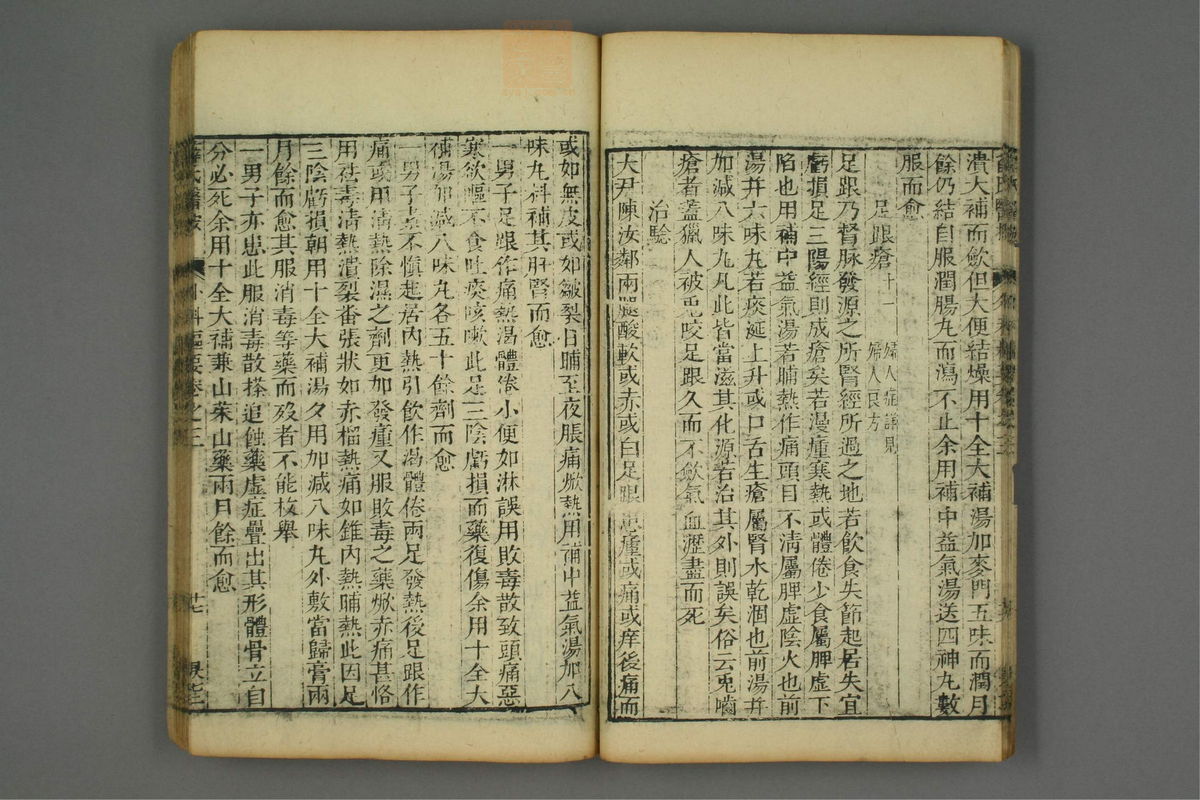 潰大補而歛但大便結燥用十全大補湯加麥門五味而潤月
餘仍結自服潤腸丸而瀉不止余用補中益氣湯送四神丸數
服而愈
足跟瘡十一
婦人症詳見
婦人良方
足跟乃督脉發源之所腎經所過之地若飲食失節起居失宜
虧損足三陽經則成瘡矣若漫瘇寒熱或體倦少食屬脾虛下
陷也用補中益氣湯若晡熱作痛頭目不清屬脾虛陰火也前
湯并六味丸若痰涎上升或口舌生瘡屬腎水乾涸也前湯并
加減八味丸凡此皆當滋其化源若治其外則誤矣俗云兎囓
瘡者蓋獵人被兎咬足跟久而不歛氣血瀝盡而死
治驗
大尹陳汝鄰兩腿酸軟或赤或白足跟患瘇或痛或痒後痛而
或如無皮或如皺裂日晡至夜脹痛焮熱用補中益氣湯加八
味丸料補其肝腎而愈
一男子足跟作痛熱渴體倦小便如淋誤用敗毒散致頭痛惡
寒欲嘔不食吐痰咳嗽此足三陰虧損而藥復傷余用十全大
補湯加減八味丸各五十餘劑而愈
一男子素不慎起居內熱引飲作渴體倦兩足發熱後足跟作
痛或用清熱除濕之劑更加發瘇又服敗毒之藥焮赤痛甚恪
用祛毒清熱潰裂番張狀如赤榴熱痛如錐內熱晡熱此因足
三陰虧損朝用十全大補湯夕用加減八味丸外敷當歸膏兩
月餘而愈其服消毒等藥而歿者不能枚舉
一男子亦患此服消毒散搽追蝕藥虛症疊出其形體骨立自
分必死余用十全大補兼山茱山藥兩月餘而愈
薛氏醫按
外科樞要卷之三
廿七